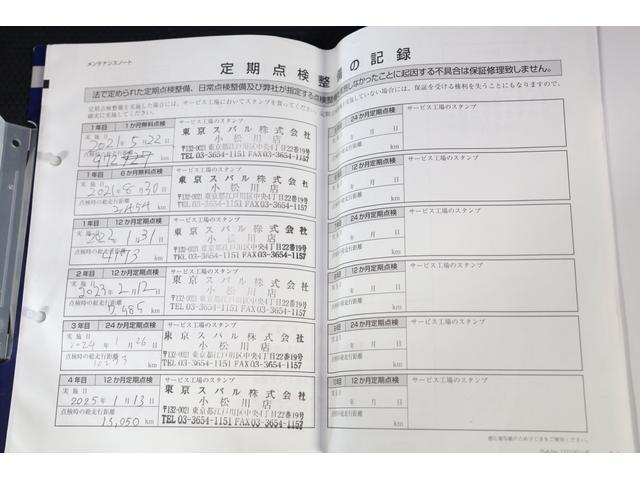 メンテナンスノート
定期点検整備の記録
法で定められた定期点検整備、日常点検整備及び弊社が指定する点検整備
定期点検整備を実施した場合には、サービス工場においてスタンプを貰ってください。
確実に実施してください。
1年目 1か月無料点検 サービス工場のスタンプ
実施日
2021年5月22日
東京スバル株式会社
小松川店
〒132-0021 東京都江戸川区中央4丁目22番19号
TEL 03-3654-1151 FAX 03-3654-1157
1年目 6か月無料点検 サービス工場のスタンプ
実施日
2021年8月30日
点検時の総走行距離
km
東京スバル株式会社
小松川店
〒132-0021 東京都江戸川区中央4丁目22番19号
TEL 03-3654-1151 FAX 03-3654-1157
1年目 12か月定期点検 サービス工場のスタンプ
実施日
2022年1月31日
点検時の総走行距離
4173 km
東京スバル株式会社
小松川店
〒132-0021 東京都江戸川区中央4丁目22番19号
TEL 03-3654-1151 FAX 03-3654-1157
2年目 12か月定期点検 サービス工場のスタンプ
実施日
2023年2月12日
点検時の総走行距離
7,485 km
東京スバル株式会社
小松川店
〒132-0021 東京都江戸川区中央4丁目22番19号
TEL 03-3654-1151 FAX 03-3654-1157
3年目 24か月定期点検 サービス工場のスタンプ
実施日
2024年1月26日
点検時の総走行距離
km
東京スバル株式会社
小松川店
〒132-0021 東京都江戸川区中央4丁目22番19号
TEL 03-3654-1151 FAX 03-3654-1157
4年目 12か月定期点検 サービス工場のスタンプ
実施日
2025年1月13日
点検時の総走行距離
13,050 km
東京スバル株式会社
小松川店
〒132-0021 東京都江戸川区中央4丁目22番19号
TEL 03-3654-1151 FAX 03-3654-1157
実施しなかったことに起因する不具合は保証修理致しません。
していない場合には、保証を受ける権利を失うことにもなりますので、
24か月定期点検 サービス工場のスタンプ
年 月 日
km
12か月定期点検 サービス工場のスタンプ
年 月 日
km
24か月定期点検 サービス工場のスタンプ
年 月 日
km
12か月定期点検 サービス工場のスタンプ
年 月 日
km
24か月定期点検 サービス工場のスタンプ
年 月 日
km
12か月定期点検 サービス工場のスタンプ
年 月 日
km